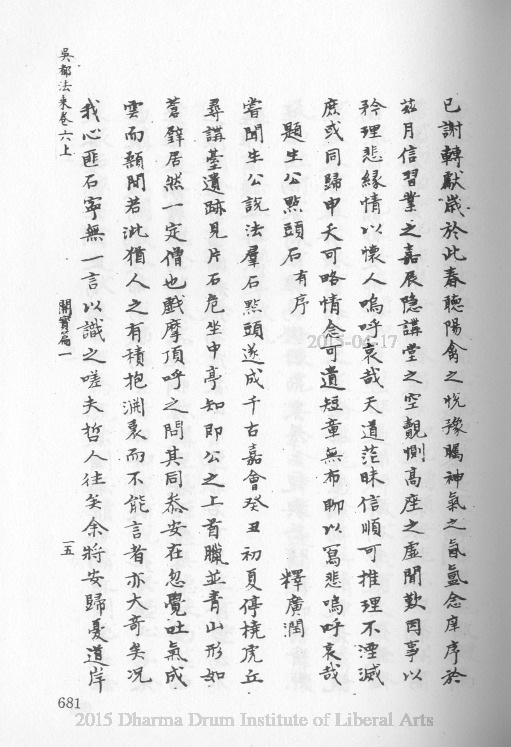 已謝轉獻歲於此春聽陽禽之悅豫矚神氣之氤氳念庠序於
茲月信習業之嘉辰隱講堂之空觀惻高座之虛聞歎因事以
矜理悲緣情以懷人嗚呼哀哉天道茫昧信順可推理不湮滅
庶或同歸申夭可略情念可遺短章無布聊以寫悲嗚呼哀哉
題生公點頭石有序 釋廣潤
嘗聞生公說法羣石點頭遂成千古嘉會癸丑初夏停橈虎丘
尋講臺遺跡見片石危坐中亭知即公之上首臞並青山形如
蒼壁居然一定僧也戲摩頂呼之問其同叅安在忽覺吐氣成
雲而頷聞若泚猶人之有積抱淵裏而不能言者亦大奇矣況
我心匪石寧無一言以識之嗟夫哲人往矣余將安歸憂道岸
吳都法乘卷六上 開寶篇一 一五
681
2015-04-17
2015 Dharma Drum Institute of Liberal Arts